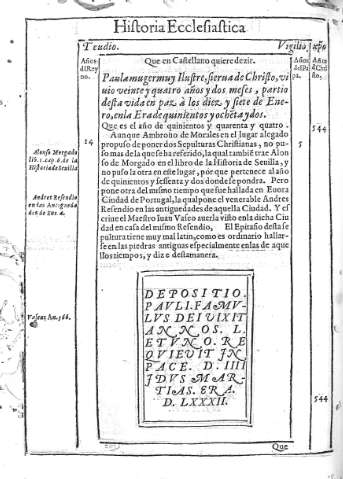 Historia Ecclesiastica
Teudio.
Vigilio
xpo
Años del Reyno.
Años del Pāpa.
Año de Chriſto,
Que en Caſtellano quiere dezir.
Paula muger muy Iluſtre, ſierua de Chriſto, vi
uio veinte y quatro años y dos meſes, partio
deſta vida en paz à los diez y ſiete de Ene-
ro, en la Era de quinientos y ochēta y dos.
Que es el año de quinientos y quarenta y quatro.
544
14
5
Aunque Ambroſio de Morales en el lugar alegado
propuſo de poner dos Sepulturas Chriſtianas, no pu-
ſo mas de la que ſe ha referido, la qual tambiē trae Alon
ſo de Morgado en el libro de la Hiſtoria de Seuilla, y
no puſo la otra en eſte lugar, por que pertenece al año
de quinientos y ſeſenta y dos donde ſe pondra. Pero
pone otra del miſmo tiempo que fue hallada en Euora
Ciudad de Portugal, la qual pone el venerable Andres
Reſendio en las antiguedades de aquella Ciudad. Y eſ
criue el Maeſtro Iuan Vaſeo auerla viſto en la dicha Ciu
dad en caſa del miſmo Reſendio, El Epitafio deſta ſe
pultura tiene muy mal latin, como es ordinario hallar-
ſe en las piedras antiguas eſpecialmente en las de aque
llos tiempos, y dize deſta manera.
Alonſo Morgado
lib. 1. cap. 6. de la
Hiſtoria de Seuilla
Andres Reſendio
en las Antigueda
des de Euora
Vaſeus, An. 566.
DEPOSITIO.
PAVLI. FAMV-
LVS DEI VIXIT
ANNOS. L.
ET VNO. RE
QVIEVIT IN
PACE. D. IIII
IDVS MAR-
TIAS. ERA.
D. LXXXII.
544
Que